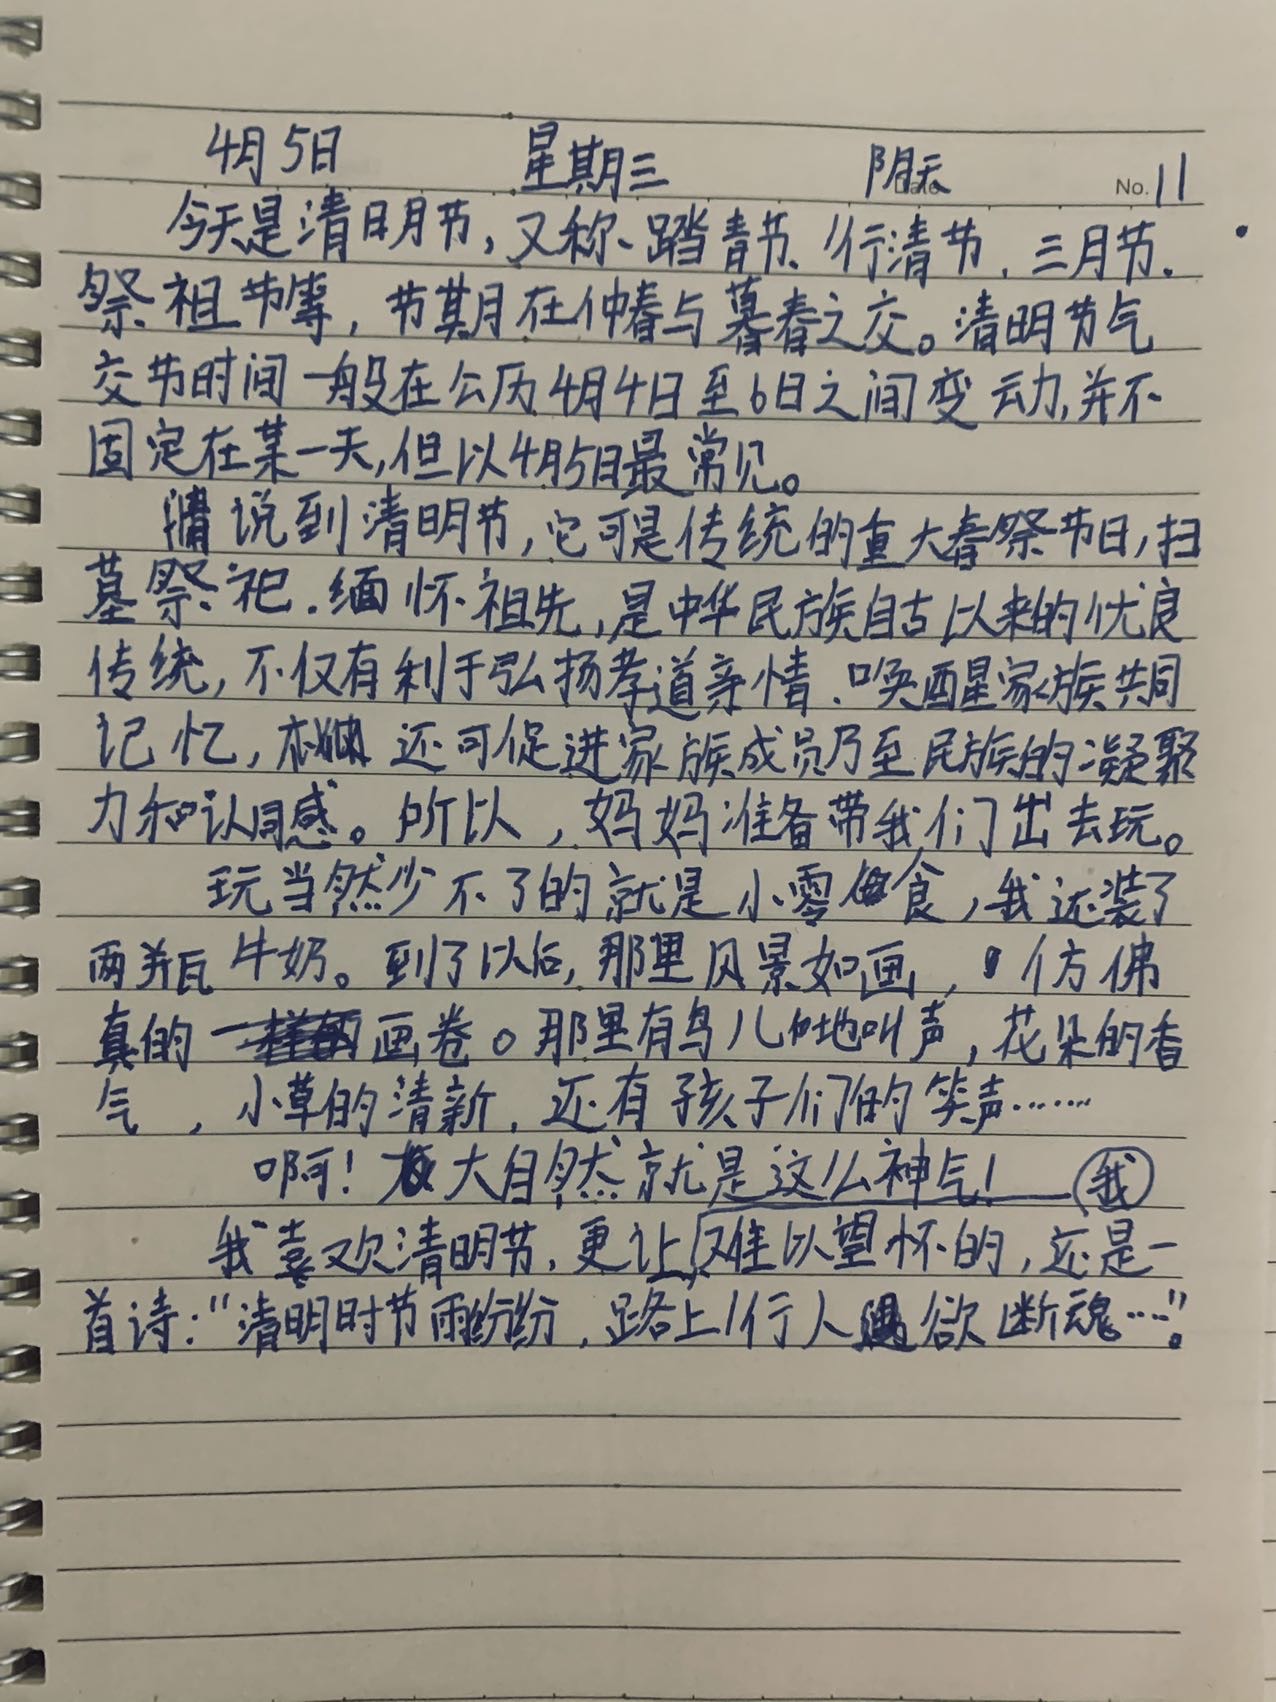 4月5日 星期三 阴天 Date No. 11
今天是清明节，又称、踏青节、行清节、三月节、
祭祖节等，节期在仲春与暮春之交。清明节气
交节时间一般在公历4月4日至6日之间变动，并不
固定在某一天，但以4月5日最常见。
说到清明节，它可是传统的重大春祭节日，扫
墓祭祀、缅怀祖先，是中华民族自古以来的优良
传统，不仅有利于弘扬孝道亲情、唤醒家族共同
记忆，还可促进家族成员乃至民族的凝聚
力和认同感。所以，妈妈准备带我们出去玩。
玩当然少不了的就是小零食，我还装了
两瓶牛奶。到了以后，那里风景如画，仿佛
真的画卷。那里有鸟儿地叫声，花朵的香
气，小草的清新，还有孩子们的笑声……
啊！大自然就是这么神气！ 我
我喜欢清明节，更让难以望怀的，还是一
首诗：“清明时节雨纷纷，路上行人欲断魂…”。